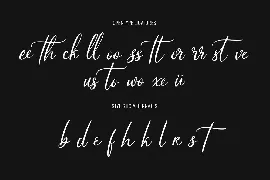 ee th ck ll oo ss tt or rr st ve
us to wo xe ii
b d e f h k l r s t